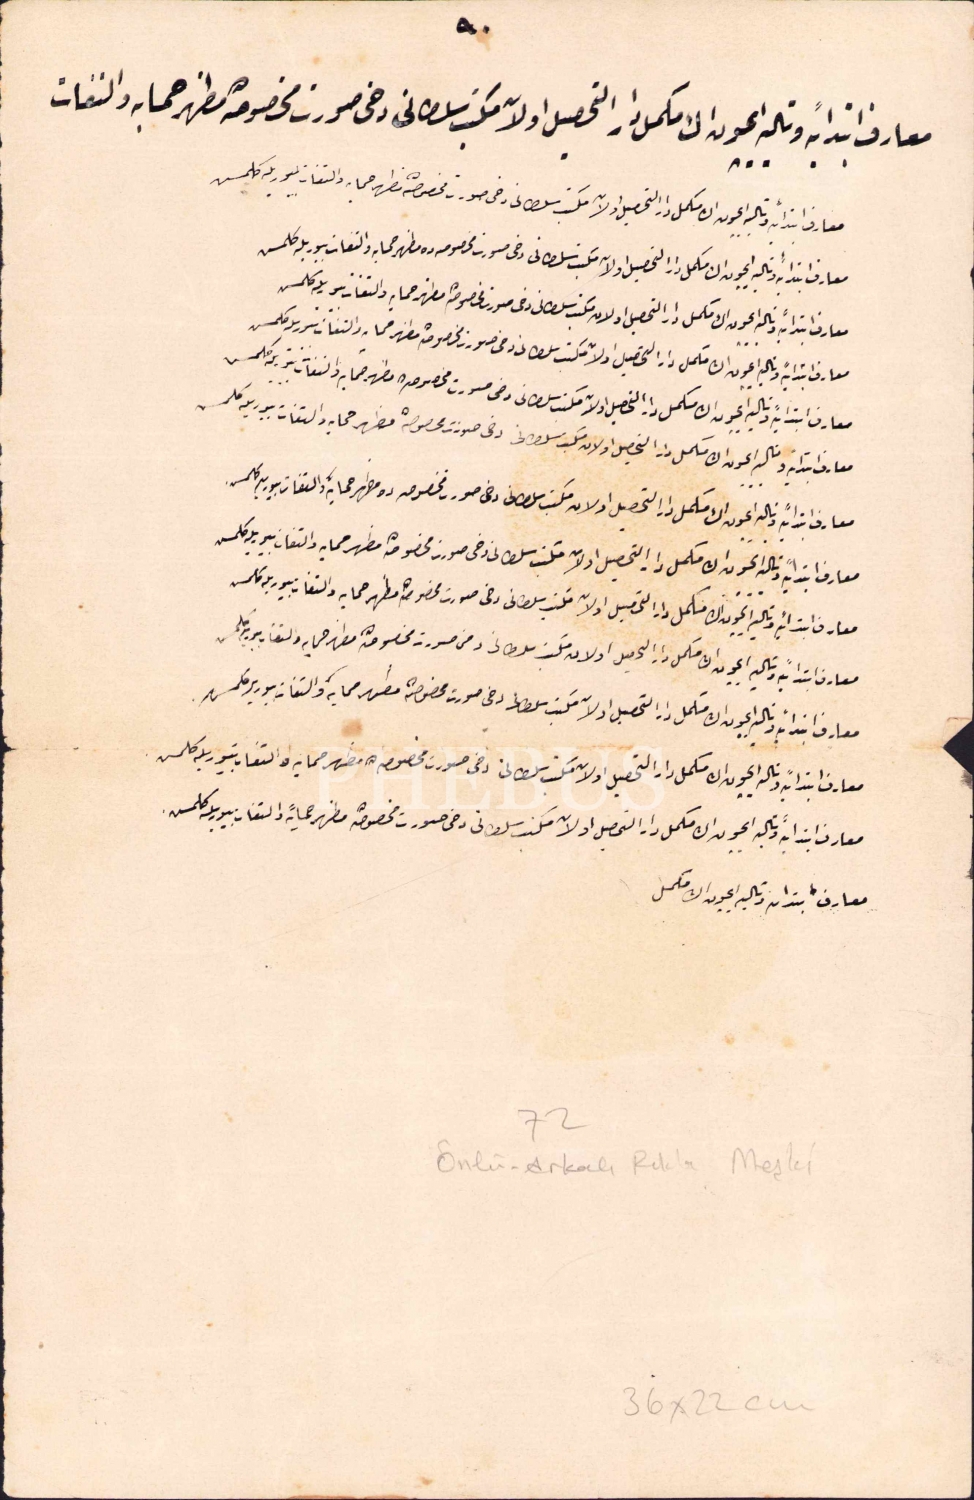 معارف ابتدائیه و تالیه ایچون اك مكمل دار التحصیل اولان مكتب سلطانی دخی صورت مخصوصه ده مظهر حمایه والتفات
معارف ابتدائیه و تالیه ایچون اك مكمل دار التحصیل اولان مكتب سلطانی دخی صورت مخصوصه ده مظهر حمایه والتفات بیوریله كلمس
معارف ابتدائیه و تالیه ایچون اك مكمل دار التحصیل اولان مكتب سلطانی دخی صورت مخصوصه ده مظهر حمایه والتفات بیوریله كلمس
معارف ابتدائیه و تالیه ایچون اك مكمل دار التحصیل اولان مكتب سلطانی دخی صورت مخصوصه ده مظهر حمایه والتفات بیوریله كلمس
معارف ابتدائیه و تالیه ایچون اك مكمل دار التحصیل اولان مكتب سلطانی دخی صورت مخصوصه ده مظهر حمایه والتفات بیوریله كلمس
معارف ابتدائیه و تالیه ایچون اك مكمل دار التحصیل اولان مكتب سلطانی دخی صورت مخصوصه ده مظهر حمایه والتفات بیوریله كلمس
معارف ابتدائیه و تالیه ایچون اك مكمل دار التحصیل اولان مكتب سلطانی دخی صورت مخصوصه ده مظهر حمایه والتفات بیوریله كلمس
معارف ابتدائیه و تالیه ایچون اك مكمل دار التحصیل اولان مكتب سلطانی دخی صورت مخصوصه ده مظهر حمایه والتفات بیوریله كلمس
معارف ابتدائیه و تالیه ایچون اك مكمل دار التحصیل اولان مكتب سلطانی دخی صورت مخصوصه ده مظهر حمایه والتفات بیوریله كلمس
معارف ابتدائیه و تالیه ایچون اك مكمل دار التحصیل اولان مكتب سلطانی دخی صورت مخصوصه ده مظهر حمایه والتفات بیوریله كلمس
معارف ابتدائیه و تالیه ایچون اك مكمل دار التحصیل اولان مكتب سلطانی دخی صورت مخصوصه ده مظهر حمایه والتفات بیوریله كلمس
معارف ابتدائیه و تالیه ایچون اك مكمل دار التحصیل اولان مكتب سلطانی دخی صورت مخصوصه ده مظهر حمایه والتفات بیوریله كلمس
معارف ابتدائیه و تالیه ایچون اك مكمل دار التحصیل اولان مكتب سلطانی دخی صورت مخصوصه ده مظهر حمایه والتفات بیوریله كلمس
معارف ابتدائیه و تالیه ایچون اك مكمل دار التحصیل اولان مكتب سلطانی دخی صورت مخصوصه ده مظهر حمایه والتفات بیوریله كلمس
معارف ابتدائیه و تالیه ایچون اك مكمل
PHEBUS
72
Önlü-Arkalı Rık'a Meşki
36x22 cm